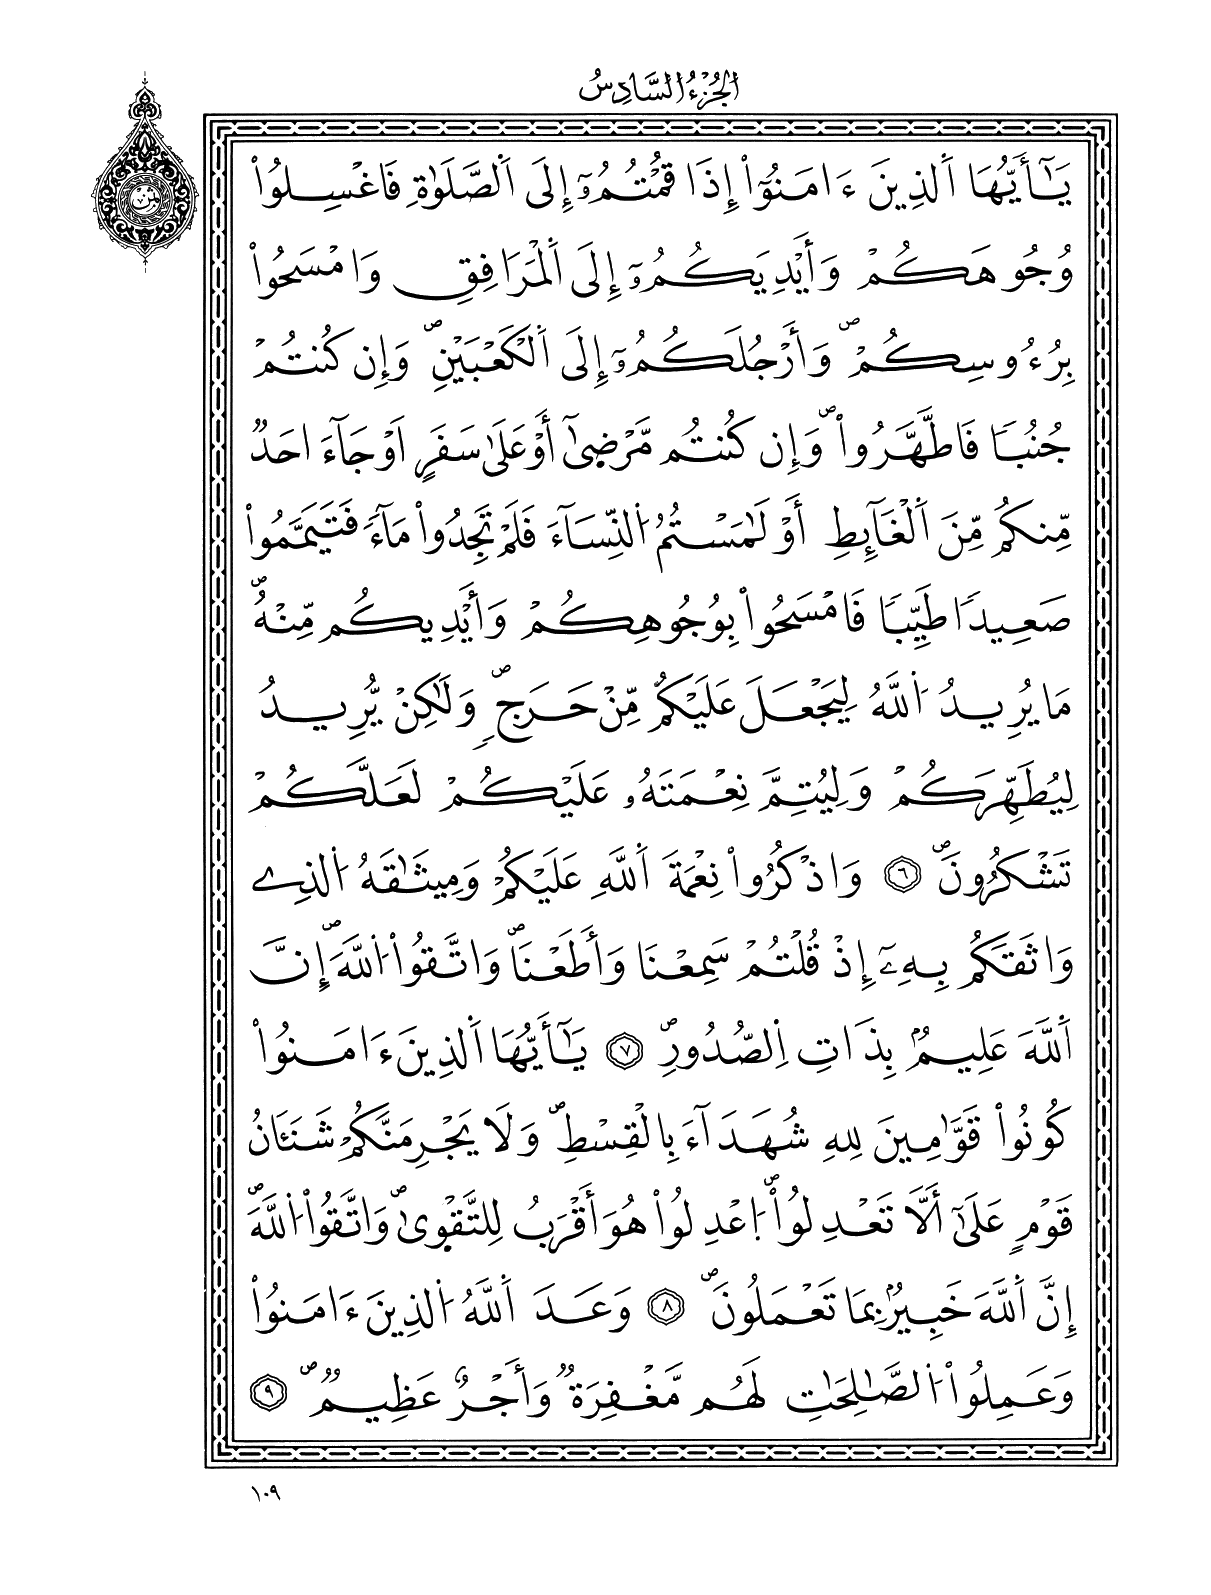 الجزء السادس
ثمن
يَٰٓأَيُّهَا اَ۬لذِينَ ءَامَنُوٓاْ إِذَا قُمْتُمُۥٓ إِلَى اَ۬لصَّلَوٰةِ فَاغْسِلُواْ
وُجُوهَكُمْ وَأَيْدِيَكُمُۥٓ إِلَى اَ۬لْمَرَافِقِ وَامْسَحُواْ
بِرُءُوسِكُمْۖ وَأَرْجُلَكُمُۥٓ إِلَى اَ۬لْكَعْبَيْنِۖ وَإِن كُنتُمْ
جُنُباٗ فَاطَّهَّرُواْۖ وَإِن كُنتُم مَّرْضِىٰٓ أَوْ عَلَىٰ سَفَرٍ اَوْ جَآءَ احَدٞ
مِّنكُم مِّنَ اَ۬لْغَآئِطِ أَوْ لَٰمَسْتُمُ اُ۬لنِّسَآءَ فَلَمْ تَجِدُواْ مَآءٗ فَتَيَمَّمُواْ
صَعِيداٗ طَيِّباٗ فَامْسَحُواْ بِوُجُوهِكُمْ وَأَيْدِيكُم مِّنْهُۖ
مَا يُرِيدُ اُ۬للَّهُ لِيَجْعَلَ عَلَيْكُم مِّنْ حَرَجٖۖ وَلَٰكِنْ يُّرِيدُ
لِيُطَهِّرَكُمْ وَلِيُتِمَّ نِعْمَتَهُۥ عَلَيْكُمْ لَعَلَّكُمْ
تَشْكُرُونَۖ ٦ وَاذْكُرُواْ نِعْمَةَ اَ۬للَّهِ عَلَيْكُمْ وَمِيثَٰقَهُ اُ۬لذِے
وَاثَقَكُم بِهِۦٓ إِذْ قُلْتُمْ سَمِعْنَا وَأَطَعْنَاۖ وَاتَّقُواْ اُ۬للَّهَۖ إِنَّ
اَ۬للَّهَ عَلِيمُۢ بِذَاتِ اِ۬لصُّدُورِۖ ٧ يَٰٓأَيُّهَا اَ۬لذِينَ ءَامَنُواْ
كُونُواْ قَوَّٰمِينَ لِلهِ شُهَدَآءَ بِالْقِسْطِۖ وَلَا يَجْرِمَنَّكُمْ شَنَـَٔانُ
قَوْمٍ عَلَىٰٓ أَلَّا تَعْدِلُواْۖ اُ۪عْدِلُواْ هُوَ أَقْرَبُ لِلتَّقْوِىٰۖ وَاتَّقُواْ اُ۬للَّهَۖ
إِنَّ اَ۬للَّهَ خَبِيرُۢ بِمَا تَعْمَلُونَۖ ٨ وَعَدَ اَ۬للَّهُ اُ۬لذِينَ ءَامَنُواْ
وَعَمِلُواْ اُ۬لصَّٰلِحَٰتِ لَهُم مَّغْفِرَةٞ وَأَجْرٌ عَظِيمٞۖ ٩
١٠٩